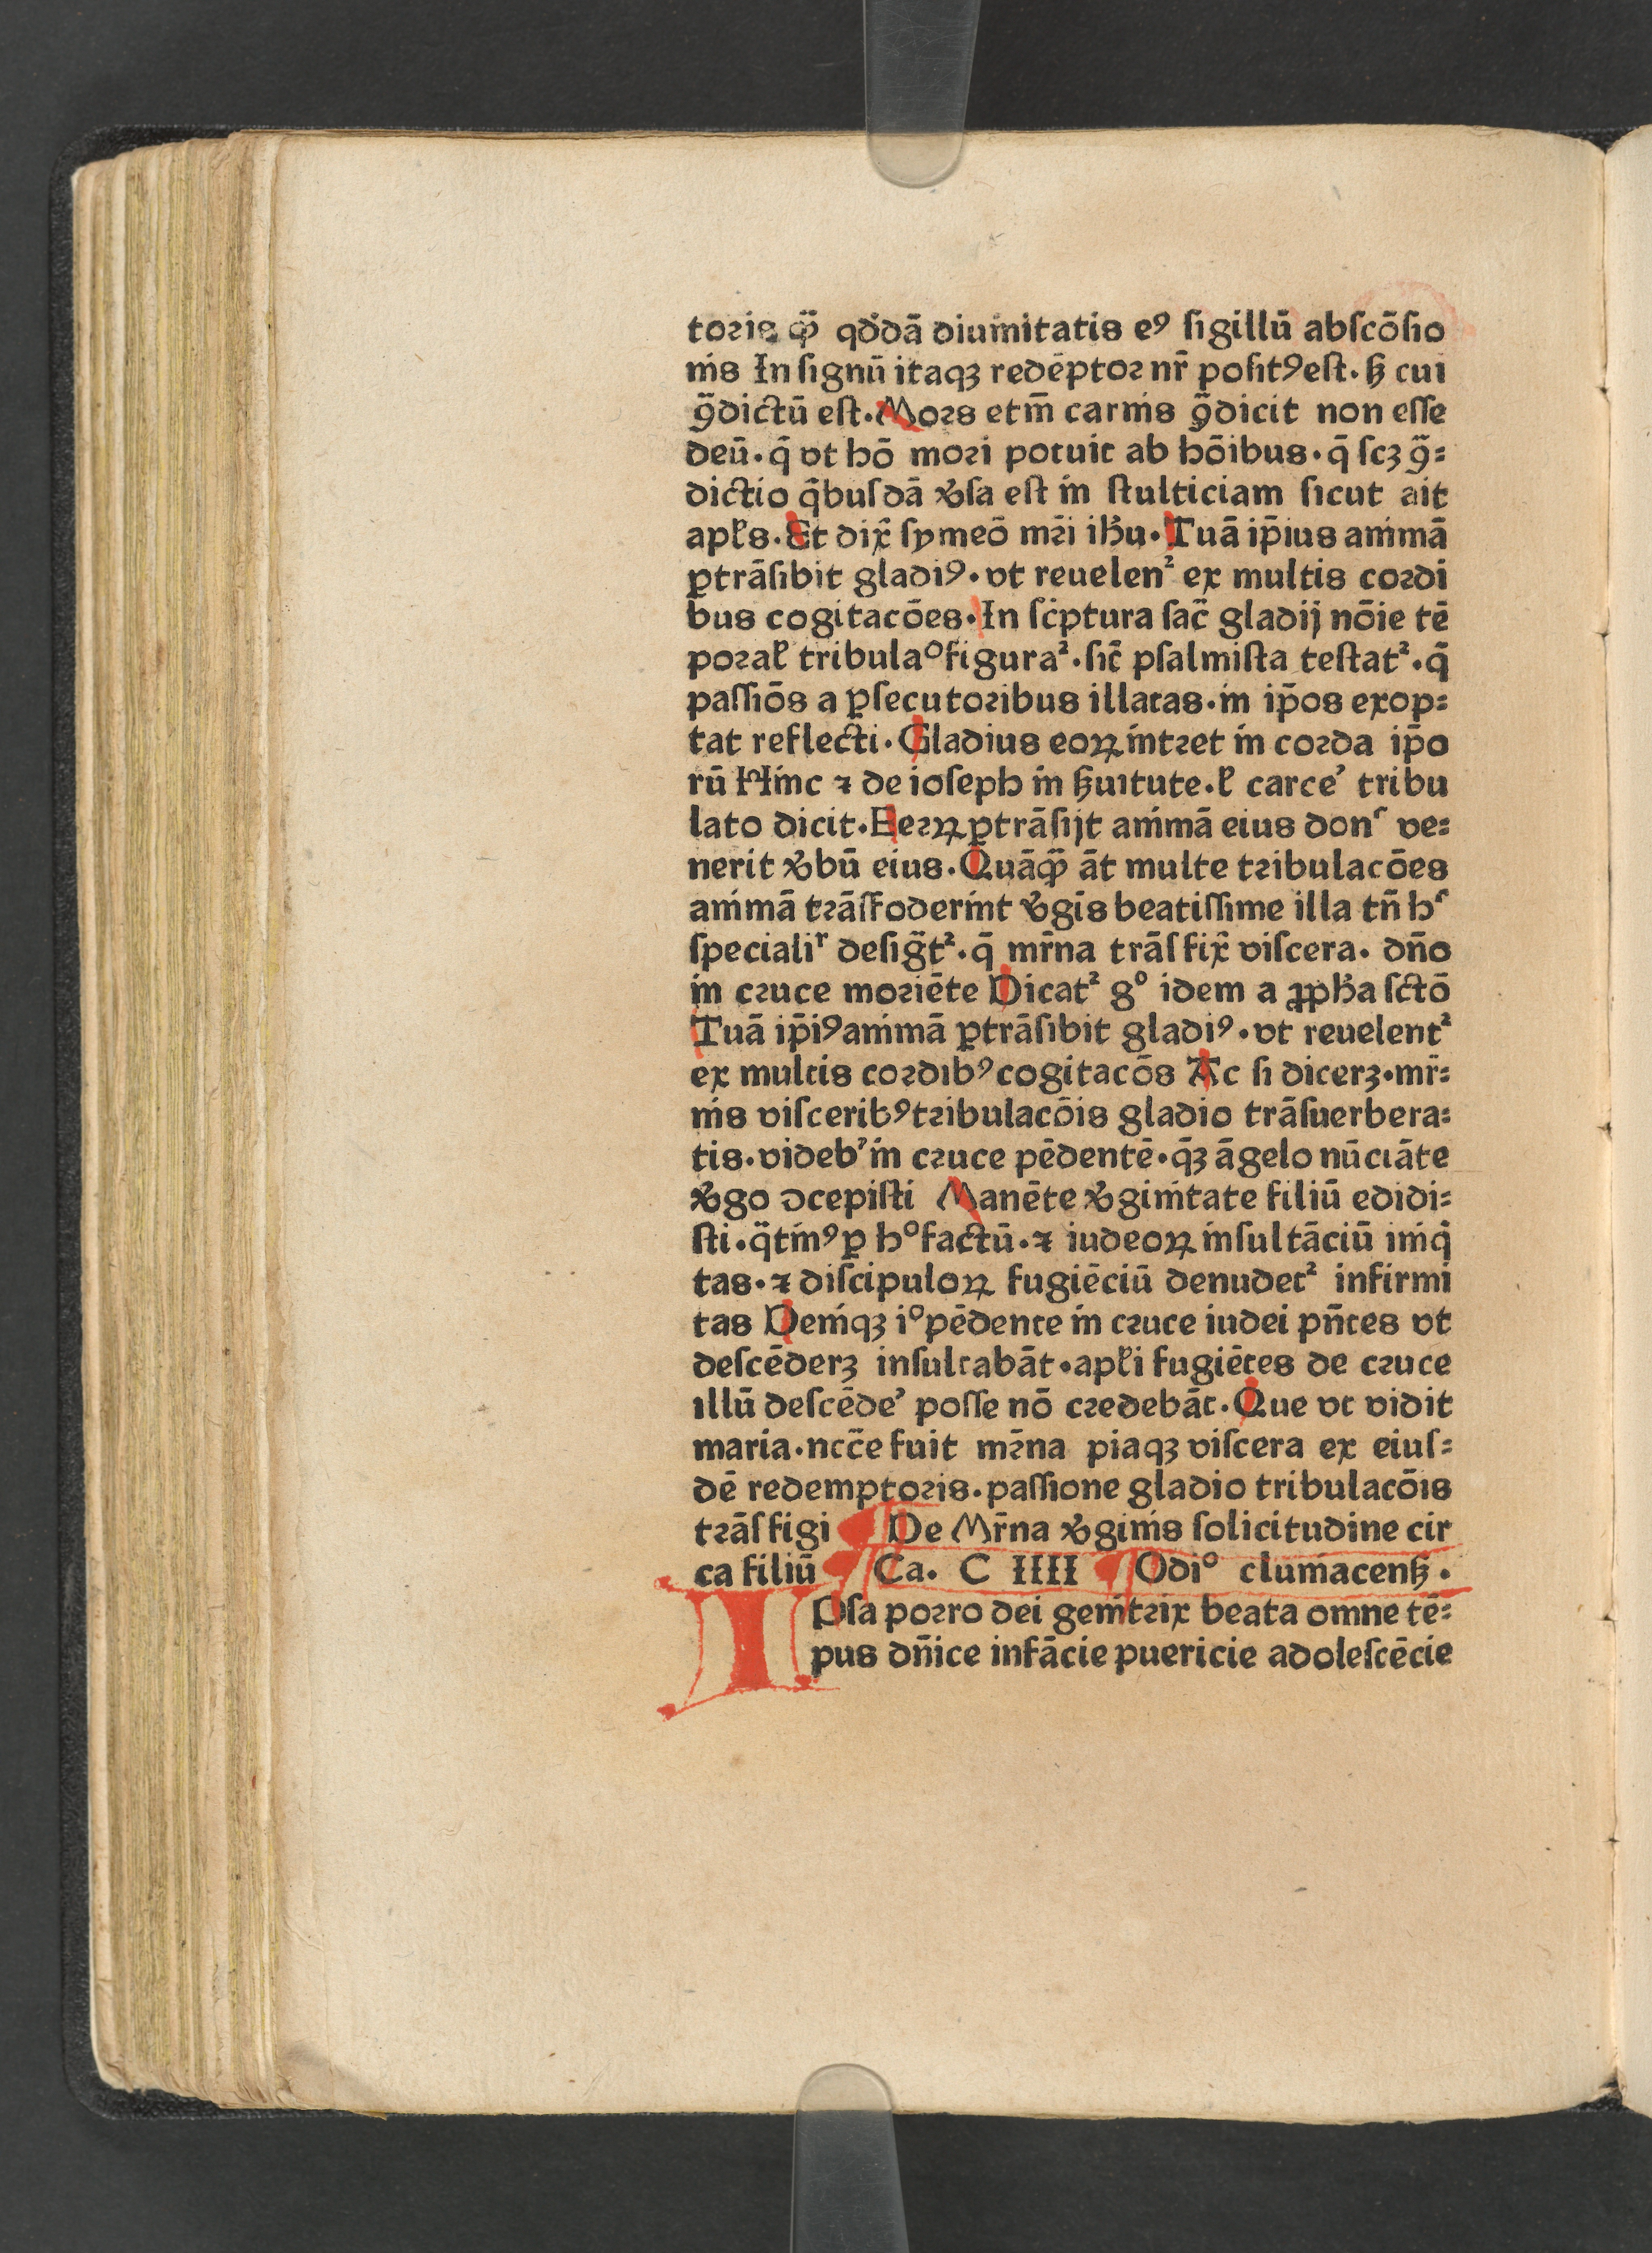 toris qͣ̃ qdͦdā diuinitatis eꝰ ſigillū abſcōſio
nis In ſignū itaqꝫ redēptor nr̄ poſitꝰeſt. ẜ cui
ꝯ̃dictū eſt. Mors etm̄ carnis ꝯ̃dicit non eſſe
deū. q̄ vt hō mori potuit ab hōibus. q̄ ſcꝫ ꝯ̃⸗
dictio q̄buſdā v̓ſa eſt in ſtulticiam ſicut ait
apƚs. Et dix̄ ſymeō mr̄i ihu̓. Tuā ip̄ius animā
ꝑtrāſibit gladiꝰ. vt reuelenᷣ ex multis cordi
bus cogitacōes. In ſcͥptura ſac̄ gladij nōie tē
poraƚ tribulaͦ figuraᷣ. ſic̄ pſalmiſta teſtatᷣ. q̄
paſſiōs a ꝑſecutoribus illatas. in ip̄os exop⸗
tat reflecti. Gladius eoꝝ intret in corda ip̄o
rū Hinc ⁊ de ioſeph in ẜuitute. ƚ carce᾽ tribu
lato dicit. Ferꝝ ꝑtrāſijt animā eius donˢ ve⸗
nerit v̓bū eius. Quāqͣ̃ āt multe tribulacōes
animā trāſfoderint v̓gīs beatiſſime illa tn̄ hˢ
ſpecialiʳ deſig̃tᷣ. q̄ mr̄na trāſfix̄ viſcera. dn̄o
in cruce moriēte Dicatᷣ gͦ idem a ꝓpha̓ ſctō
Tuā ip̄iꝰ animā ꝑtrāſibit gladiꝰ. vt reuelentᷣ
ex multis cordibꝰ cogitacōs Ac ſi dicerꝫ. mr̄⸗
nis viſceribꝰ tribulacōis gladio trāſuerbera⸗
tis. videb᾽ in cruce pēdentē. q̄ꝫ āgelo nūciāte
v̓go ꝯcepiſti Manēte v̓ginitate filiū edidi⸗
ſti. q̄tinꝰ ꝑ hͦ factū. ⁊ iudeoꝝ inſultāciū iniq̄
tas. ⁊ diſcipuloꝝ fugiēciū denudetᷣ infirmi
tas Deniqꝫ iͦ pēdente in cruce iudei pn̄tes vt
deſcēderꝫ inſultabāt. apƚi fugiētes de cruce
illū deſcēde᾽ poſſe nō credebāt. Que vt vidit
maria. ncc̄e fuit mr̄na piaqꝫ viſcera ex eiuſ⸗
dē redemptoris. paſſione gladio tribulacōis
trāſfigi ¶ De Mr̄na v̓ginis ſolicitudine cir
ca filiū ¶ Ca. C IIII ¶ Odiͦ cluniacenẜ.
IPſa porro dei genitrix beata omne tē⸗
pus dn̄ice infācie puericie adoleſcēcie